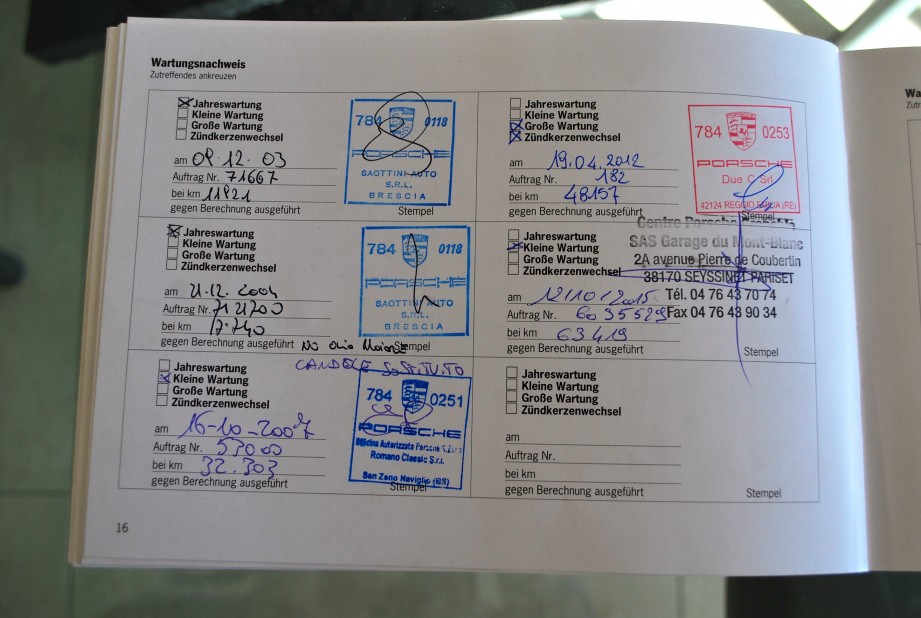 Wartungsnachweis
Zutreffendes ankreuzen
Jahreswartung
Kleine Wartung
Große Wartung
Zündkerzenwechsel
am 09.12.03
Auftrag Nr. 71667
bei km 11821
gegen Berechnung ausgeführt
Stempel
784 0118
PORSCHE
SAOTTINI AUTO
S.R.L.
BRESCIA
Jahreswartung
Kleine Wartung
Große Wartung
Zündkerzenwechsel
am 21.12.2004
Auftrag Nr. 7121700
bei km 17.740
gegen Berechnung ausgeführt
No olio Motore
Stempel
784 0118
PORSCHE
SAOTTINI AUTO
S.R.L.
BRESCIA
CANDELE SOSTITUITO
Jahreswartung
Kleine Wartung
Große Wartung
Zündkerzenwechsel
am 16-10-2007
Auftrag Nr. 53000
bei km 32.303
gegen Berechnung ausgeführt
Stempel
784 0251
PORSCHE
Officina Autorizzata Porsche
Romano Classic S.r.l.
San Zeno Naviglio (BS)
16
Jahreswartung
Kleine Wartung
Große Wartung
Zündkerzenwechsel
am 19.04.2012
Auftrag Nr. 182
bei km 48157
gegen Berechnung ausgeführt
Stempel
784 0253
PORSCHE
Due C Srl
42124 REGGIO EMILIA (RE)
Jahreswartung
Kleine Wartung
Große Wartung
Zündkerzenwechsel
am 12/10/2015
Auftrag Nr. 6035529
bei km 63419
gegen Berechnung ausgeführt
Stempel
Centre Porsche
SAS Garage du Mont-Blanc
2A avenue Pierre de Coubertin
38170 SEYSSINET PARISET
Tél. 04 76 43 70 74
Fax 04 76 43 90 34
Jahreswartung
Kleine Wartung
Große Wartung
Zündkerzenwechsel
am
Auftrag Nr.
bei km
gegen Berechnung ausgeführt
Stempel